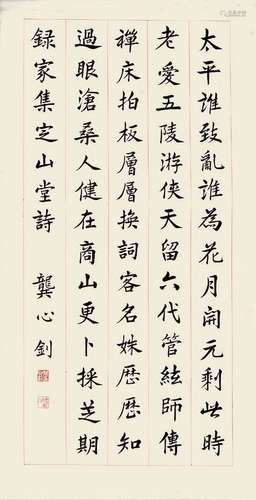 太平誰致亂誰為花月開元剩此時
老愛五陵游俠天留六代管絃師傳
禪床拍板層層換詞客名姝歷歷知
過眼滄桑人健在商山更卜採芝期
録家集定山堂詩 龔心釗